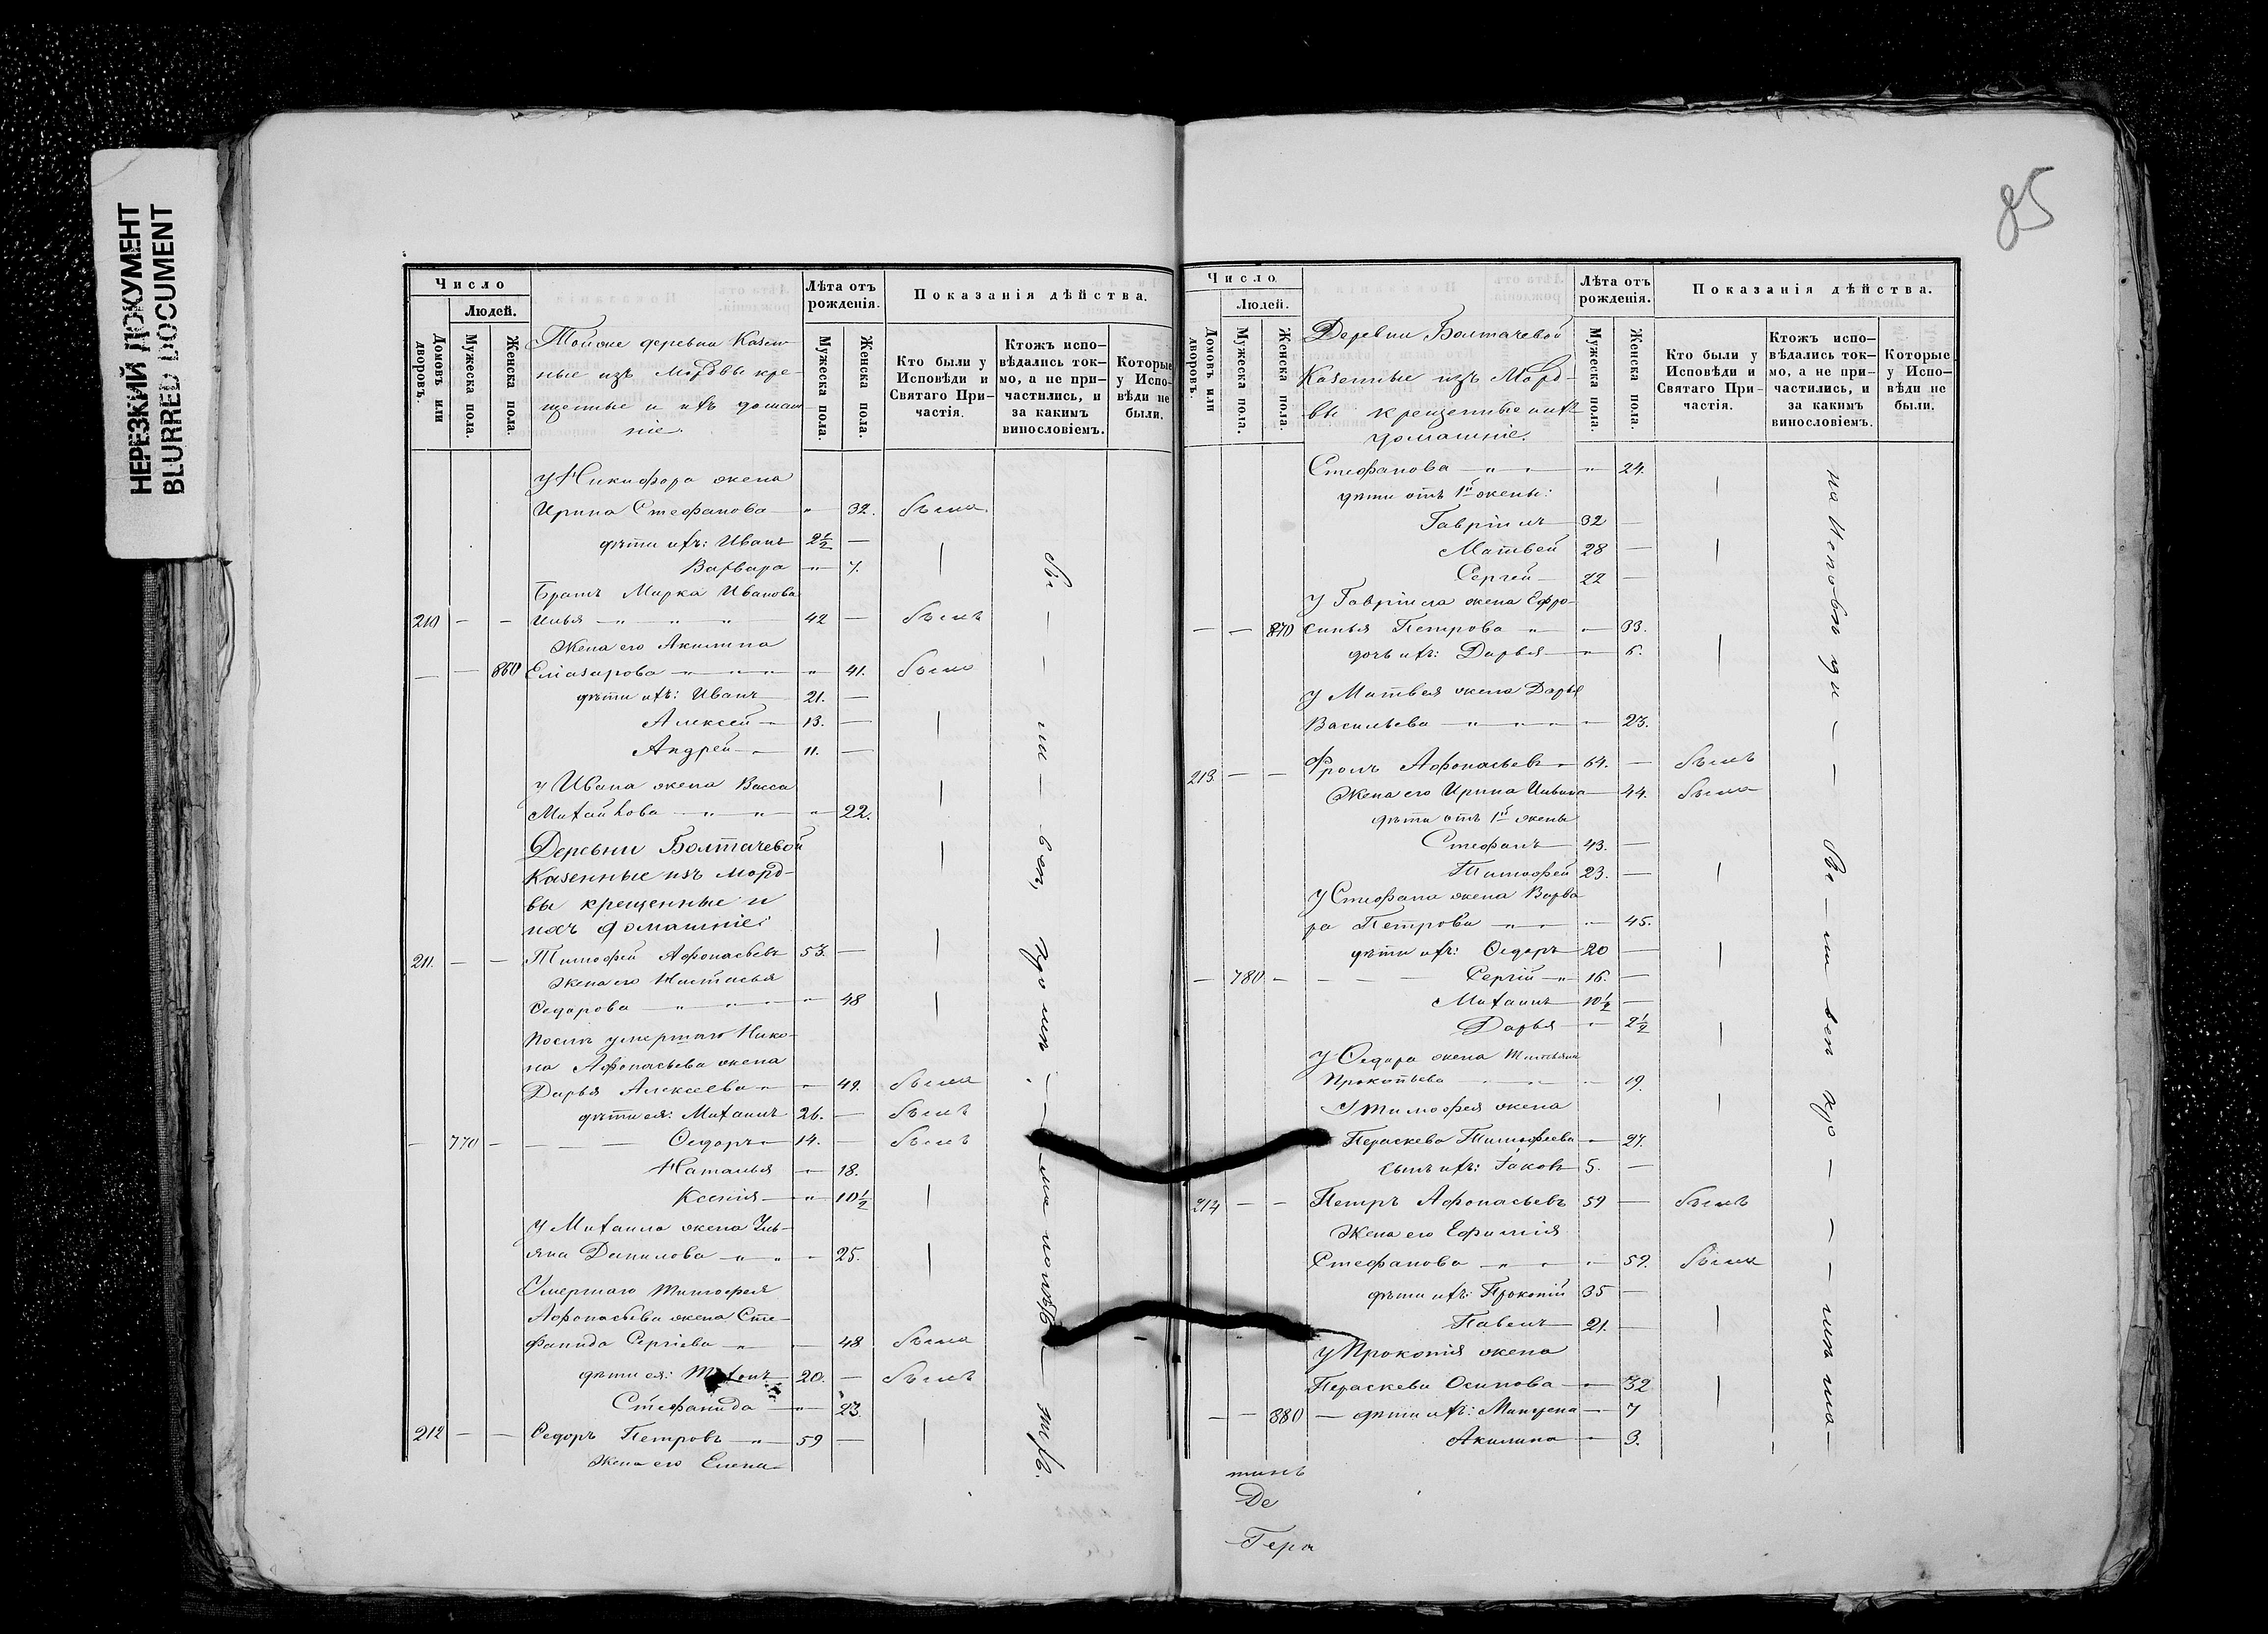 НЕРЕЗКИЙ ДОКУМЕНТ
BLURRED DOCUMENT
85
Число
Людей.
Домовъ или дворовъ.
Мужеска пола.
Женска пола.
Лѣта отъ рожденія.
Мужеска пола.
Женска пола.
Показанія дѣйства.
Кто были у Исповѣди и Святаго Причастія.
Ктожъ исповѣдались токмо, а не причастились, и за какимъ винословіемъ.
Которые у Исповѣди не были.
Тойже деревни Казен
ные изъ Мордвы кре-
щенные и ихъ домаш
ніе.
У Никифора жена
Ирина Стефанова — " 32. была
дѣти ихъ: Иванъ 2½ —
Варвара — " 7.
Братъ Марка Иванова
210 — — Илья — " — " — " 42 — былъ
Жена его Акилина
— — 860 Елиазарова — " — " — " 41. была
дѣти ихъ: Иванъ 21. —
Алексей — 13. —
Андрей — " 11. —
у Ивана жена Васса
Михайлова — " — " — " 22.
Деревни Болтачевой
Казенные изъ Морд-
вы крещенные и
ихъ домашніе:
211. — — Тимофей Афонасьевъ 53. —
Жена его Настасья
Федорова — " — " — " 48
После умершаго Нико-
на Афонасьева жена
Дарья Алексеева — " — 49. была
дѣти ея: Михаилъ 26. — былъ
— 770 — — — — Ѳедоръ — 14. — былъ
Наталья — " 18.
Ксенія — " 10½
У Михаила жена Уль-
яна Данилова — " — " — " 25.
Умершаго Тимофея
Афонасьева жена Сте-
фанида Сергіева — " — 48 была
дѣти ея: 20. — былъ
Стефанида — " 23.
212 — — Федоръ Петровъ — " 59 —
Жена его Елена
Число
Людей.
Домовъ или дворовъ.
Мужеска пола.
Женска пола.
Лѣта отъ рожденія.
Мужеска пола.
Женска пола.
Показанія дѣйства.
Кто были у Исповѣди и Святаго Причастія.
Ктожъ исповѣдались токмо, а не причастились, и за какимъ винословіемъ.
Которые у Исповѣди не были.
Деревни Болтачевой
Казенные изъ Морд-
вы крещенные и ихъ
домашніе.
Стефанова — " — " 24.
дѣти отъ 1й жены:
Гавріилъ 32 —
Матвей 28 —
Сергей — 22 —
У Гавріила жена Ефро-
— — 870 синья Петрова " — " 33.
дочь ихъ: Дарья — " 6.
У Матвея жена Дарья
Васильева " — " — " — 23.
213. — — Фролъ Афонасьевъ — 64. — былъ
Жена его Ирина Ильина — 44. была
дѣти отъ 1й жены
Стефанъ — 43. —
Тимофей 23. —
У Стефана жена Варва
ра Петрова — " — " — 45.
дѣти ихъ: Ѳедоръ 20 —
— 780 — — — — Сергій — " 16. —
Михаилъ 10½ —
Дарья — " 2½
У Ѳедора жена Татьяна
Прокопьева — " — " — 19.
У Тимофея жена
Параскева Тимофеева — 27.
сынъ ихъ: Iаковъ 5. —
214 — — Петръ Афонасьевъ 59 — былъ
Жена его Ефимія
Стефанова — " — " — " 59. была
дѣти ихъ: Прокопій 35 —
Павелъ 21. —
У Прокопія жена
Параскева Осипова — " — 32
— — 880 — дѣти ихъ: — " 7
Акилина — " 3.
Де
Гера